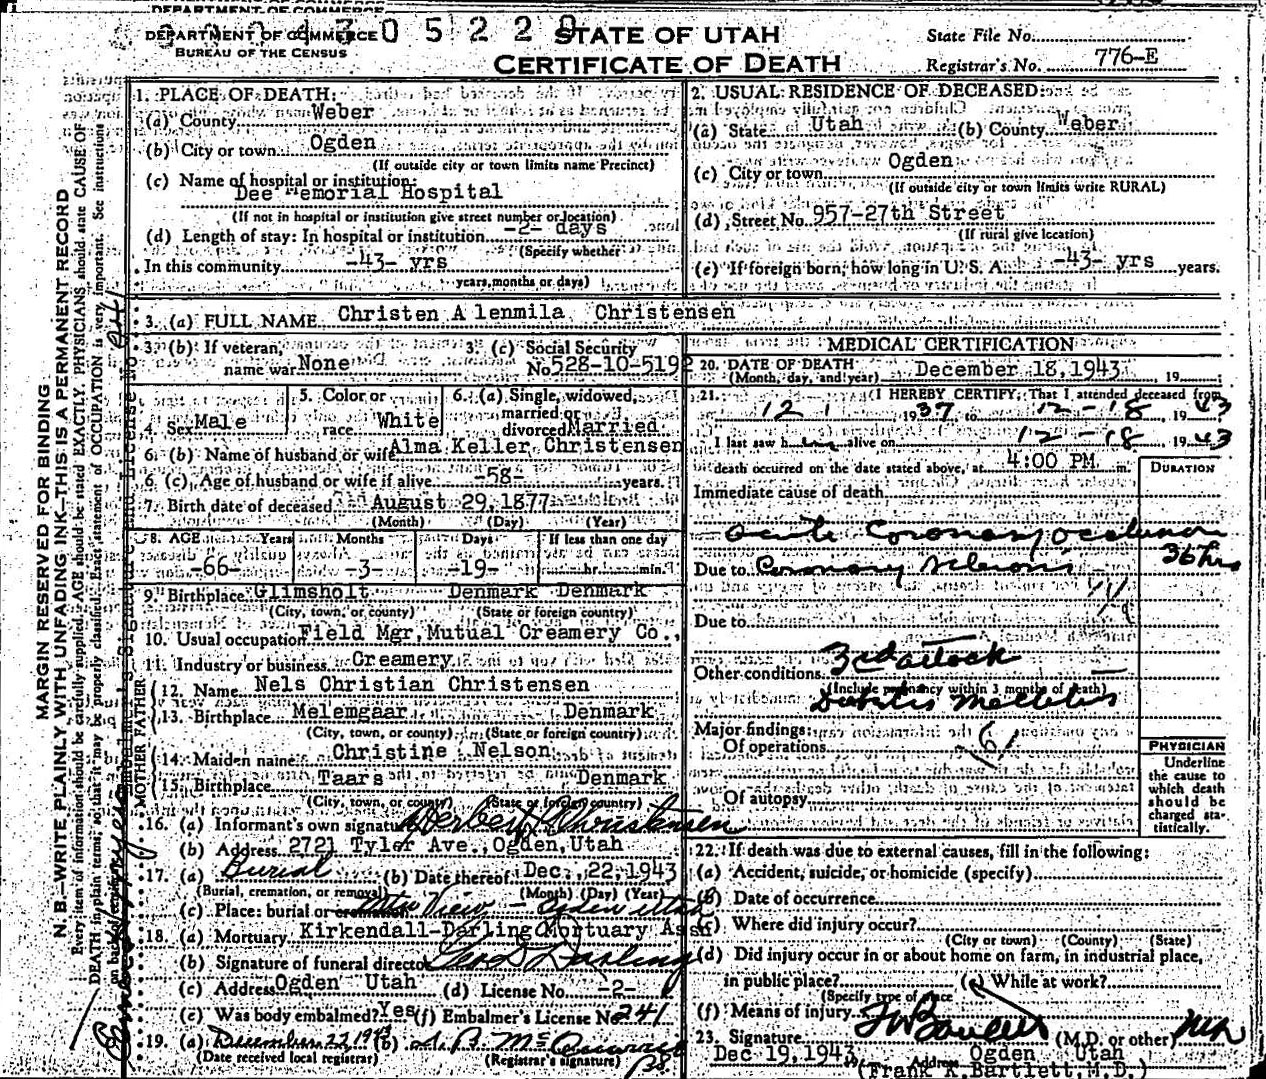 DEPARTMENT OF COMMERCE
BUREAU OF THE CENSUS
0 5 2 2 0
STATE OF UTAH
CERTIFICATE OF DEATH
State File No.
Registrar's No. 776-E
MARGIN RESERVED FOR BINDING
N. B.—WRITE PLAINLY, WITH UNFADING INK—THIS IS A PERMANENT RECORD
Every item of information should be carefully supplied. AGE should be stated EXACTLY. PHYSICIANS should state CAUSE OF
DEATH in plain terms, so that it may be properly classified. Exact statement of OCCUPATION is very important. See instructions
1. PLACE OF DEATH:
(a) County Weber
(b) City or town Ogden
(If outside city or town limits name Precinct)
(c) Name of hospital or institution:
Dee Memorial Hospital
(If not in hospital or institution give street number or location)
(d) Length of stay: In hospital or institution -2- days
(Specify whether
In this community -43- yrs
years, months or days)
2. USUAL RESIDENCE OF DECEASED:
(a) State Utah (b) County Weber
(c) City or town Ogden
(If outside city or town limits write RURAL)
(d) Street No. 957-27th Street
(If rural give location)
(e) If foreign born, how long in U. S. A. -43- yrs years.
3. (a) FULL NAME Christen A lenmila Christensen
3. (b) If veteran,
name war None
3. (c) Social Security
No. 528-10-5192
4. Sex Male
5. Color or
race White
6. (a) Single, widowed,
married or
divorced Married
6. (b) Name of husband or wife Alma Keller Christensen
6. (c) Age of husband or wife if alive -58- years.
7. Birth date of deceased August 29, 1877
(Month) (Day) (Year)
8. AGE Years Months Days If less than one day
-66- -3- -19- hr. min.
9. Birthplace Glimsholt Denmark Denmark
(City, town, or county) (State or foreign country)
10. Usual occupation Field Mgr, Mutual Creamery Co.,
11. Industry or business Creamery
FATHER
12. Name Nels Christian Christensen
13. Birthplace Melemgaar Denmark
(City, town, or county) (State or foreign country)
MOTHER
14. Maiden name Christine Nelson
15. Birthplace Taars Denmark
(City, town, or county) (State or foreign country)
16. (a) Informant's own signature Herbert Christensen
(b) Address 2721 Tyler Ave., Ogden, Utah
17. (a) Burial (b) Date thereof Dec. 22, 1943
(Burial, cremation, or removal) (Month) (Day) (Year)
(c) Place: burial or cremation Mtn View - Ogden Utah
18. (a) Mortuary Kirkendall-Darling Mortuary Assn
(b) Signature of funeral director Geo D Darling
(c) Address Ogden Utah (d) License No. -2-
(e) Was body embalmed? Yes (f) Embalmer's License No. 241
19. (a) December 22 1943 (b)
(Date received local registrar) (Registrar's signature)
MEDICAL CERTIFICATION
20. DATE OF DEATH
(Month, day, and year) December 18, 1943 19
21. I HEREBY CERTIFY: That I attended deceased from
12 1 1937 to 12-18, 1943
I last saw him alive on 12-18, 1943
death occurred on the date stated above, at 4:00 PM m.
DURATION
Immediate cause of death
Acute Coronary occlusion
36 hrs
Due to Coronary sclerosis
Due to
Other conditions 3rd attack
(Include pregnancy within 3 months of death)
Diabetis Mellitus
Major findings:
Of operations
61
Of autopsy
PHYSICIAN
Underline
the cause to
which death
should be
charged sta-
tistically.
22. If death was due to external causes, fill in the following:
(a) Accident, suicide, or homicide (specify)
(b) Date of occurrence
(c) Where did injury occur?
(City or town) (County) (State)
(d) Did injury occur in or about home on farm, in industrial place,
in public place? (e) While at work?
(Specify type of place
(f) Means of injury
23. Signature F K Bartlett (M.D. or other) MD
Dec 19, 1943 Address Ogden Utah
(Frank K. Bartlett, M.D.)